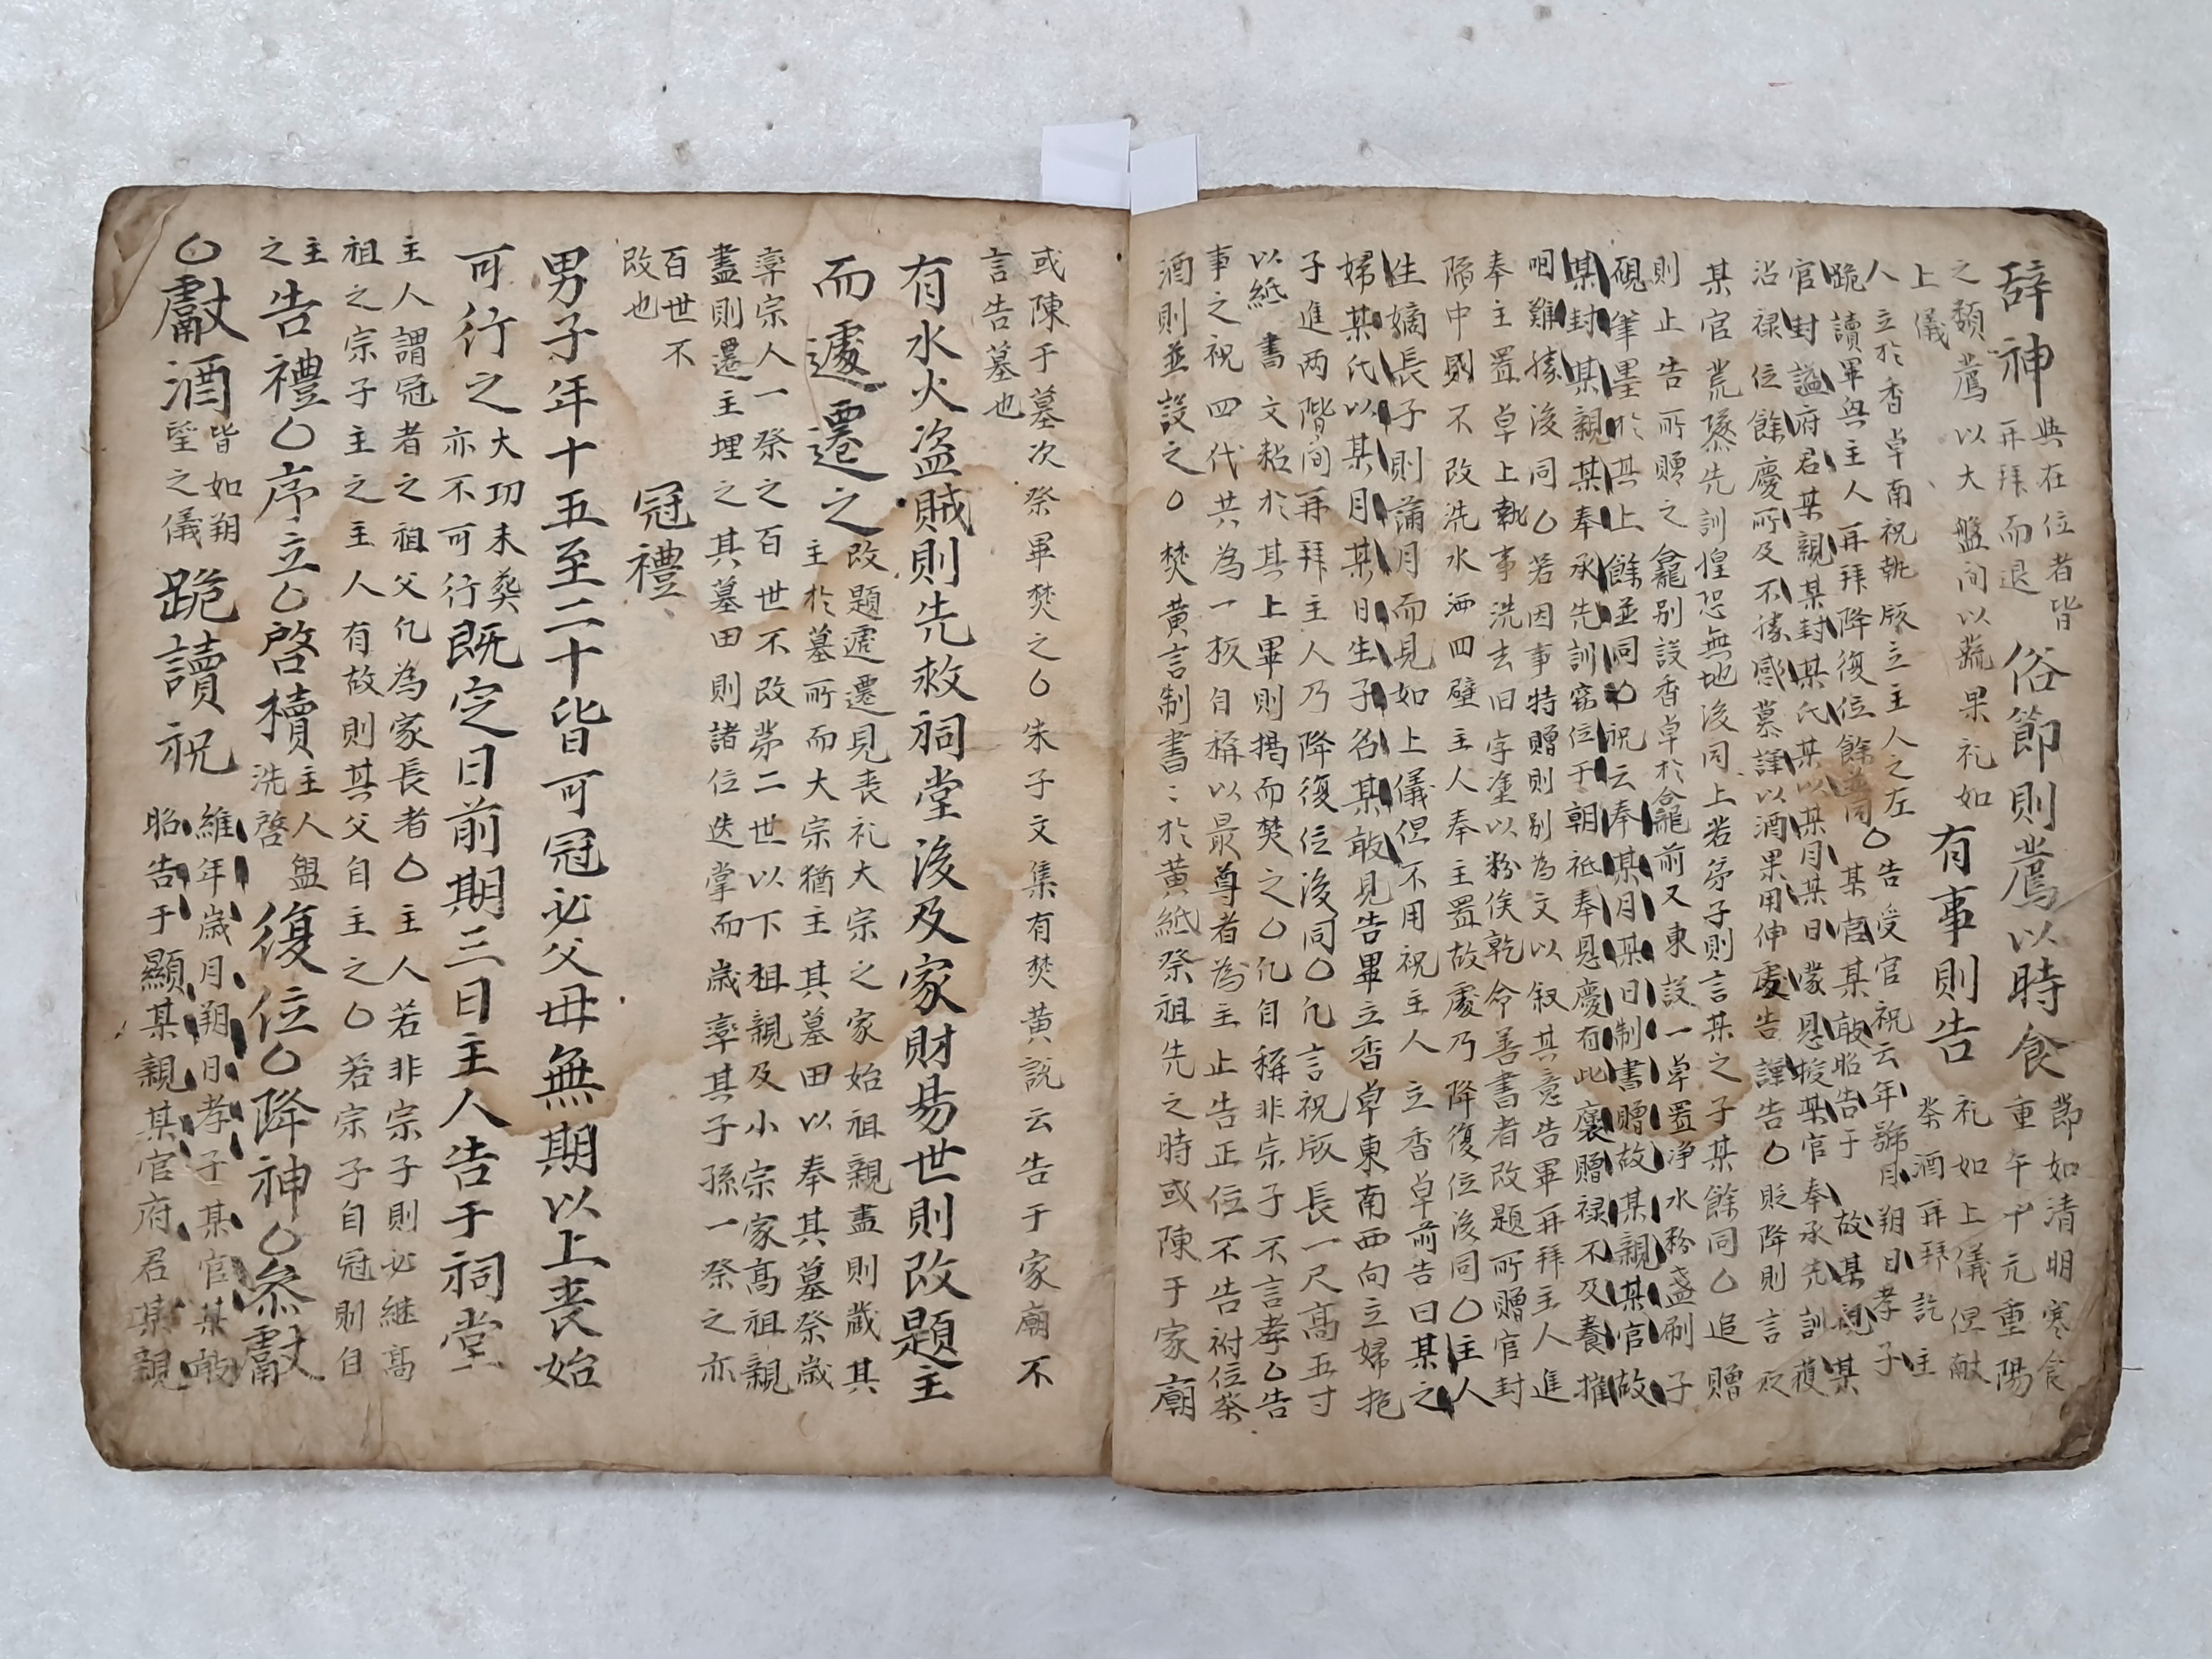 辞神 與在位者皆
再拜而退 俗節則薦以時食 節如清明寒食
重午中元重陽
之類薦以大盤間以蔬果礼如
上儀 有事則告 礼如上儀但献
茶酒再拜訖主
人立於香卓南祝執版立主人之左
跪讀畢興主人再拜降復位餘並同〇告受官祝云年號月朔日孝子
某官某敢昭告于故某親某
官封謚府君某親某封某氏某以某月某日蒙恩授某官奉承先訓獲
沾禄位餘慶所及不勝感慕謹以酒果用伸虔告謹告〇貶降則言貶
某官荒墜先訓惶恐無地後同上若弟子則言某之子某餘同〇追贈
則止告所贈之龕別設香卓於龕前又東設一卓置净水粉盞刷子
硯筆墨於其上餘並同〇祝云奉某月某日制書贈故某親某官故
某封某親某奉承先訓竊位于朝祗奉恩慶有此褒贈禄不及養摧
咽難勝後同〇若因事特贈則別為文以叙其意告畢再拜主人進
奉主置卓上執事洗去旧字塗以粉俟乾命善書者改題所贈官封
陷中則不改洗水洒四壁主人奉主置故處乃降復位後同〇主人
生嫡長子則滿月而見如上儀但不用祝主人立香卓前告曰某之
婦某氏以某月某日生子名某敢見告畢立香卓東南西向立婦抱
子進两階間再拜主人乃降復位後同〇凡言祝版長一尺高五寸
以紙書文粘於其上畢則揭而焚之〇凡自稱非宗子不言孝〇告
事之祝四代共為一板自稱以最尊者為主止告正位不告祔位茶
酒則並設之〇焚黄言制書於黄紙祭祖先之時或陳于家廟
或陳于墓次祭畢焚之〇朱子文集有焚黄説云告于家廟不
言告墓也
有水火盗賊則先救祠堂後及家財易世則改題主
而遞遷之 改題遞遷見喪礼大宗之家始祖親盡則藏其
主於墓所而大宗猶主其墓田以奉其墓祭歳
率宗人一祭之百世不改第二世以下祖親及小宗家高祖親
盡則遷主埋之其墓田則諸位迭掌而歳率其子孫一祭之亦
百世不
改也
冠禮
男子年十五至二十皆可冠必父母無期以上喪始
可行之 大功未葬
亦不可行 既定日前期三日主人告于祠堂
主人謂冠者之祖父凡為家長者〇主人若非宗子則必継髙
祖之宗子主之主人有故則其父自主之〇若宗子自冠則自
主
之 告禮〇序立〇啓櫝 主人盥
洗啓 復位〇降神〇叅獻
〇獻酒 皆如朔
望之儀 跪讀祝 維年歳月朔日孝子某官某敢
昭告于顯某親某官府君某親